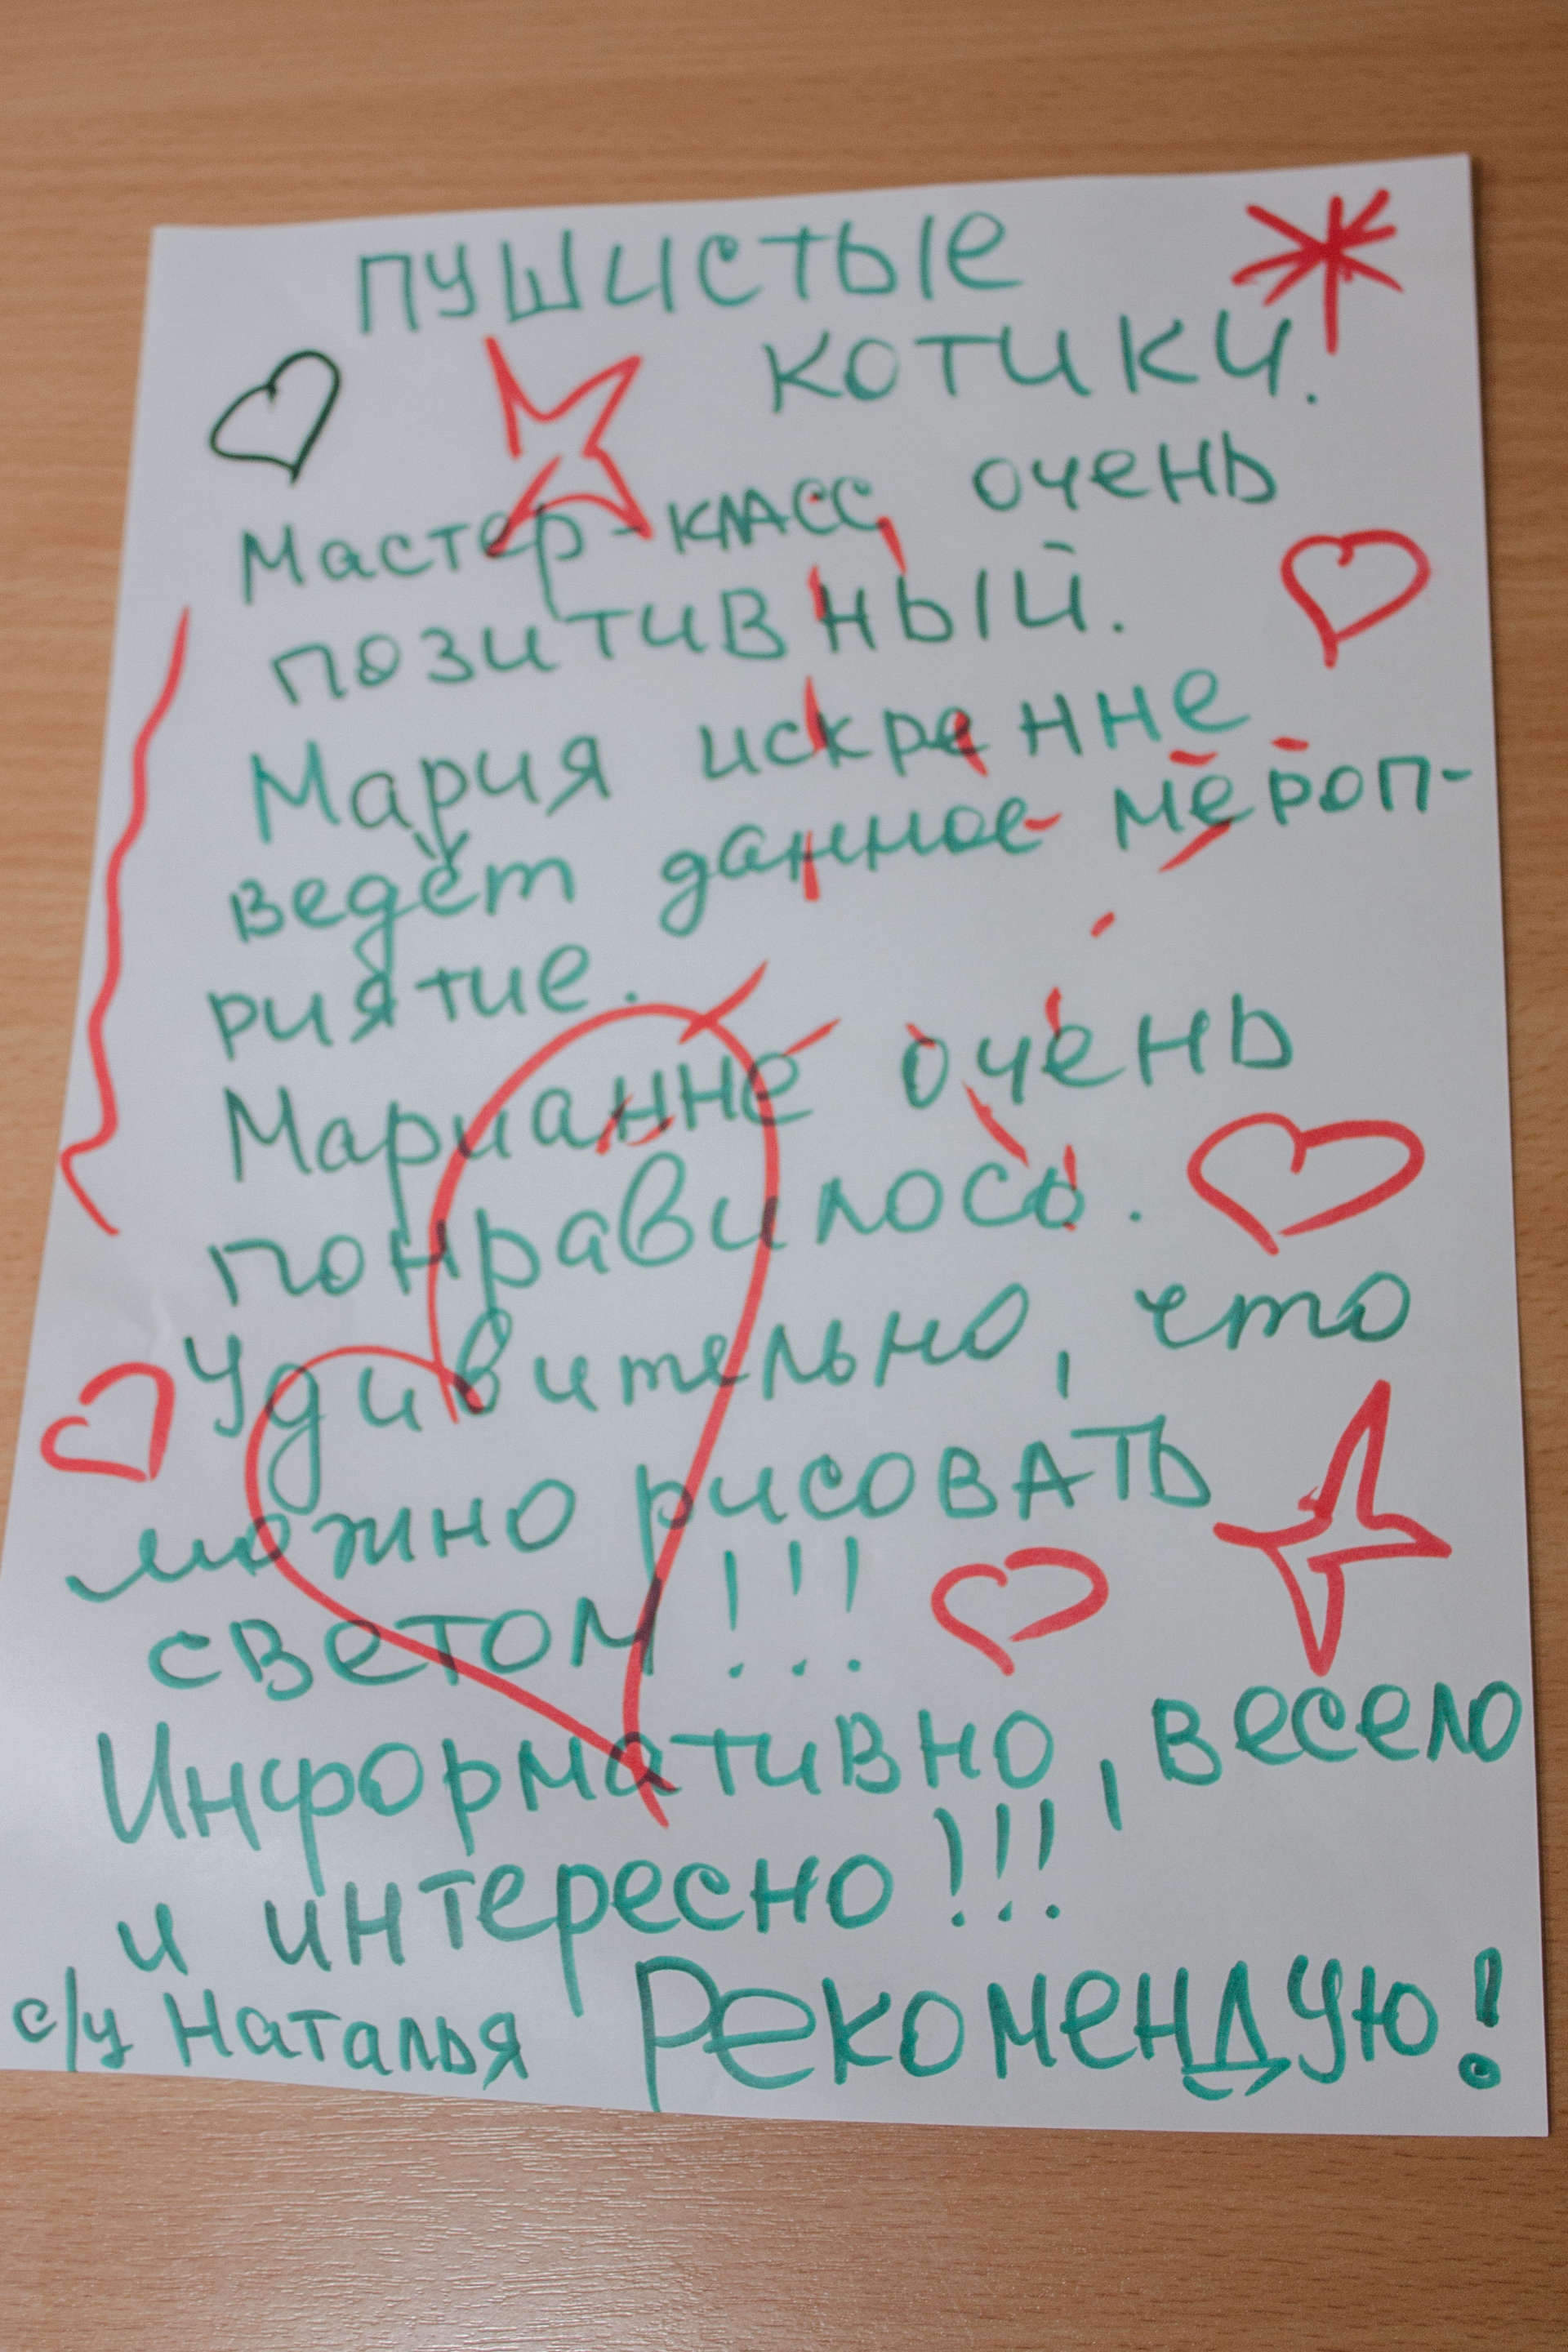 ПУШИСТЫЕ
КОТИКИ.
Мастер-класс очень
позитивный.
Мария искренне
ведёт данное мероп-
риятие.
Марианне очень
понравилось.
Удивительно, что
можно рисовать
светом!!!
Информативно, весело
и интересно!!!
с/у Наталья Рекомендую!